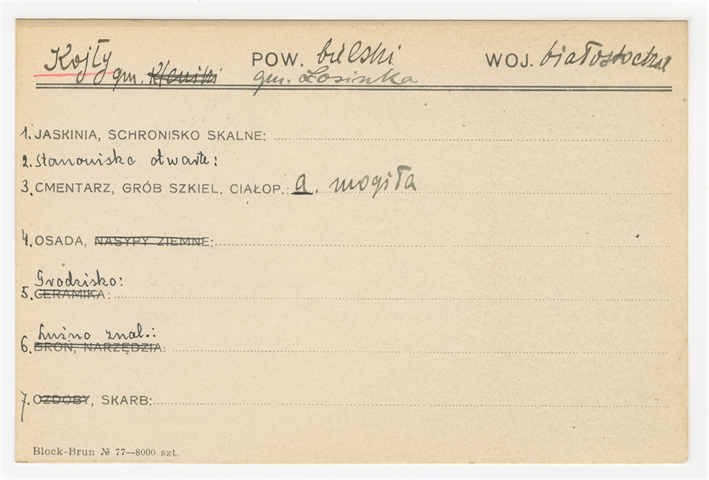 Kojły POW. bielski WOJ. białostockie
gm. Kleniki gm. Łosinka
1. JASKINIA, SCHRONISKO SKALNE:
2. Stanowiska otwarte:
3. CMENTARZ, GRÓB SZKIEL. CIAŁOP.: a. mogiła
4. OSADA, NASYPY ZIEMNE:
Grodzisko:
5. CERAMIKA:
Luźno znal.:
6. BROŃ, NARZĘDZIA:
7. OZDOBY, SKARB:
Block-Brun № 77—8000 szt.